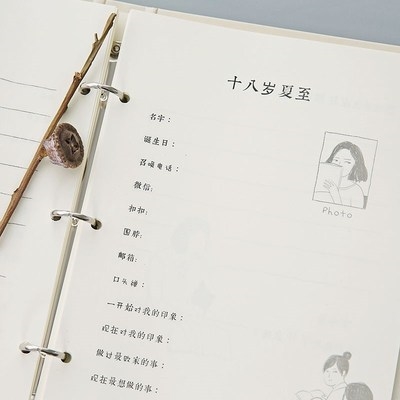 十八岁夏至
名字：
诞生日：
召唤电话：
微信：
扣扣：
围脖：
邮箱：
口头禅：
一开始对我的印象：
现在对我的印象：
做过最败家的事：
现在最想做的事：
Photo